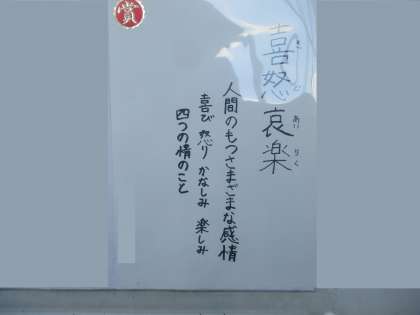 賞
喜怒哀楽
き ど あい らく
人間のもつさまざまな感情
喜び 怒り かなしみ 楽しみ
四つの情のこと